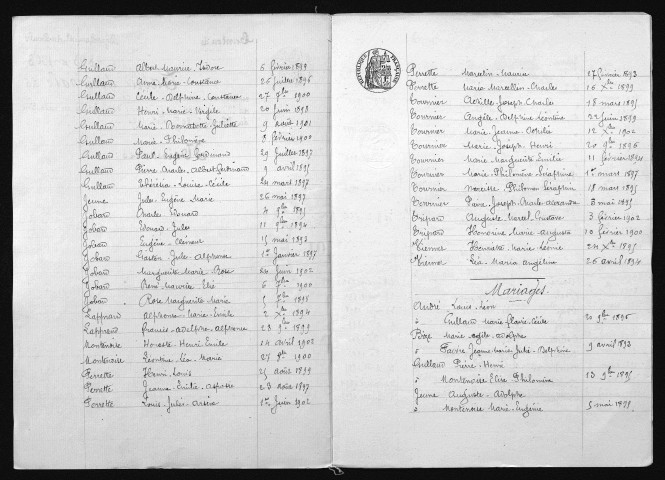 Guillaud Albert Maurice Isidore 6 février 1899
Guillaud Anne Marie Constance 26 juillet 1896
Guillaud Cécile Delphine Constance 27 9bre 1900
Guillaud Henri Marie Virgile 20 juin 1898
Guillaud Marie Juliette 9 août 1901
Guillaud Marie Philomène 8 février 1900
Guillaud Paul Eugène 29 juillet 1897
Guillaud Pierre Charles Albert 9 avril 1895
Guillaud Louise Cécile 24 mars 1897
Jeune Jules Eugène Marie 26 mai 1897
Jobard Charles Edouard 4 9bre 1895
Jobard Edouard Jules 11 9bre 1894
Jobard Eugène Clément 15 mai 1893
Jobard Gaston Jules Alphonse 1er janvier 1897
Jobard Marguerite Marie Rose 24 juin 1902
Jobard René Maurice Elie 6 1900
Jobard Rose Marguerite Marie 5 1898
Lapprand Alphonse Marie Emile 2 Xbre 1894
Lapprand Francis Adolphe Alphonse 28 9bre 1899
Montenoise Honoré Henri Emile 14 avril 1902
Montenoise Léontine Léa Marie 27 9bre 1900
Perrette Henri Louis 25 août 1899
Perrette Jeanne Emilie 23 août 1897
Perrette Louis Jules Arsène 1er juin 1902
RÉPUBLIQUE FRANÇAISE
Perrette Marcelin Maurice 17 février 1893
Perrette Marie Marcellin Charles 16 Xbre 1899
Tournier Achille Joseph Charles 18 mars 1895
Tournier Angèle Delphine Léontine 22 juin 1899
Tournier Marie Jeanne 12 Xbre 1902
Tournier Marie Joseph Henri 20 9bre 1896
Tournier Marie Marguerite Emilie 11 février 1894
Tournier Marie Philomène Séraphine 1er mars 1897
Tournier Narcisse Philémon Séraphin 18 mars 1895
Tournier Pierre Joseph Charles Alexandre 3 mai 1895
Tripard Auguste Marcel Gustave 3 février 1902
Tripard Honorine Marie Augusta 10 février 1900
Viennet Marie Léonie 24 Xbre 1895
Viennet Léa Maria Angéline 26 avril 1894
Mariages.
André Louis Léon
à Guillaud Marie Flavie Cécile 20 9bre 1896
Marie Adolphe
à Favre Jeanne Marie Julie Delphine 9 avril 1893
Guillaud Pierre Henri
à Montenoise Elise Philomène 13 9bre 1895
Jeune Auguste Adolphe
à Montenoise Marie Eugénie 5 mai 1895